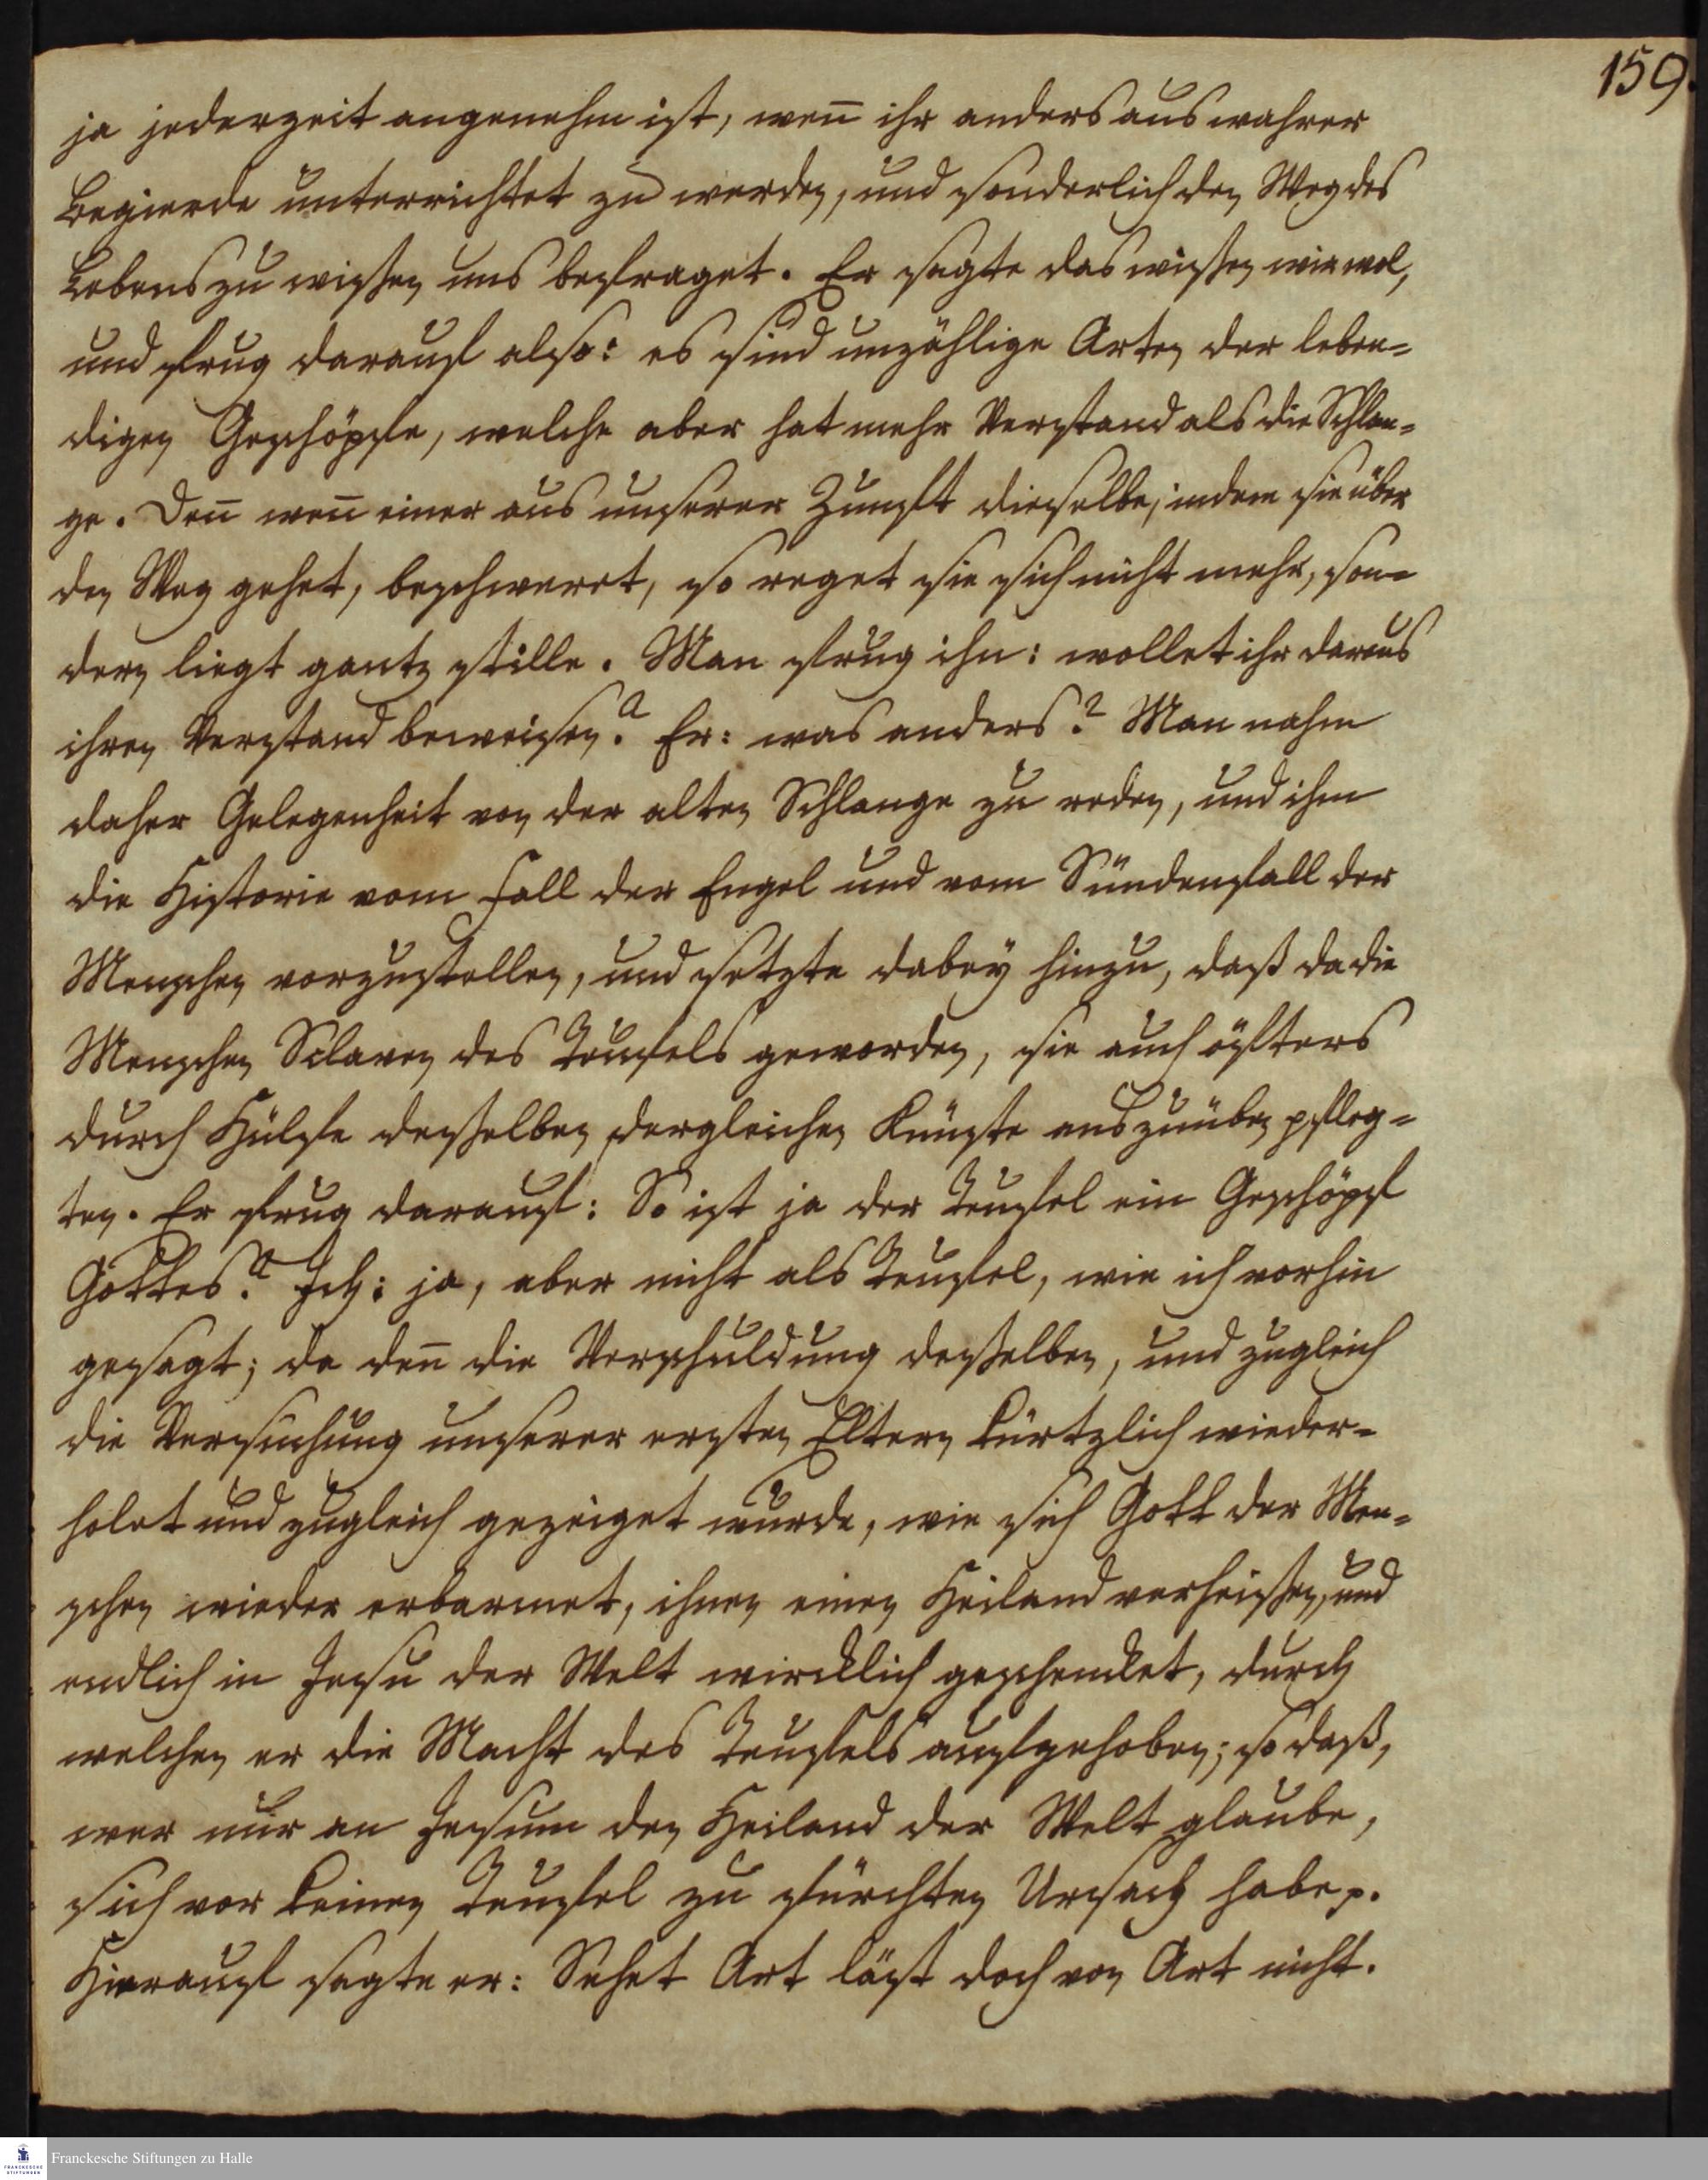 159.
ja jederzeit angenehm ist, wen̄ ihr anders aus wahrer
Begierde unterrichtet zu werden, und sonderlich den Weg des
Lebens zu wißen uns befraget. Er sagte das wißen wir wol,
und frug darauf also: es sind unzählige Arten der leben=
digen Geschöpfe, welche aber hat mehr Verstand als die Schlan=
ge. Den̄ wen̄ einer aus unserer Zunft dieselbe, indem sie über
den Weg gehet, beschweret, so reget sie sich nicht mehr, son=
dern liegt gantz stille. Man frug ihn: wollet ihr daraus
ihren Verstand beweisen? Er: was anders? Man nahm
daher Gelegenheit von der alten Schlange zu reden, und ihm
die Historie vom Fall der Engel und vom Sündenfall der
Menschen vorzustellen, und setzte dabey hinzu, daß da die
Menschen Sclaven des Teufels geworden, sie auch öfters
durch Hülfe deßelben dergleichen Künste auszuüben pfleg=
ten. Er frug darauf: So ist ja der Teufel ein Geschöpf
Gottes? Ich: ja, aber nicht als Teufel, wie ich vorhin
gesagt; da den̄ die Verschuldung deßelben, und zugleich
die Versuchung unserer ersten Eltern kürtzlich wieder=
holet und zugleich gezeiget wurde, wie sich Gott der Men=
schen wieder erbarmet, ihnen einen Heiland verheißen, und
endlich in Jesu der Welt wircklich geschencket, durch
welchen er die Macht des Teufels aufgehoben; so daß,
wer nur an Jesum den Heiland der Welt glaube,
sich vor keinen Teufel zu fürchten Ursach habe p.
Hierauf sagte er: Sehet Art läst doch von Art nicht.
Franckesche Stiftungen zu Halle